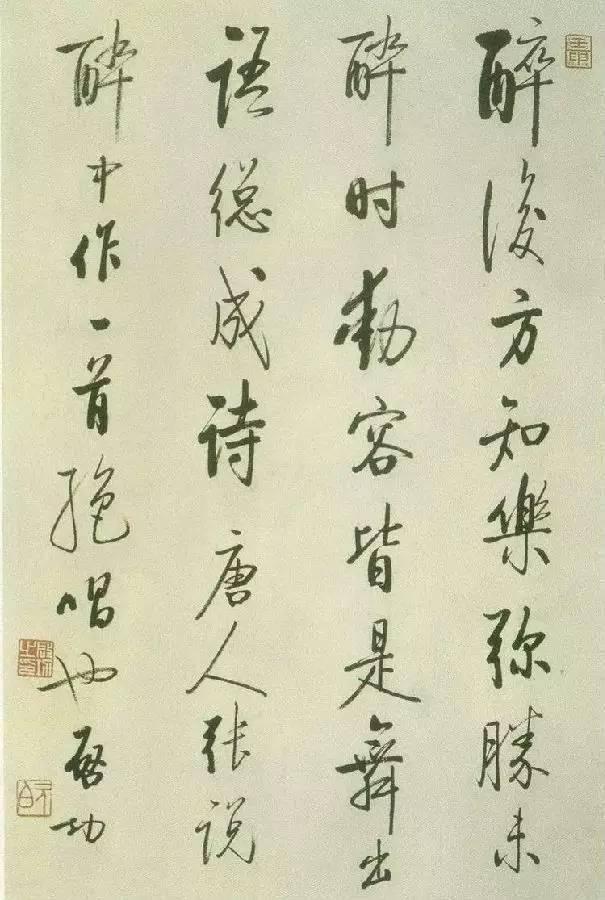 醉後方知樂弥勝未
醉时動容皆是舞出
语總成诗唐人张说
醉中作一首絶唱也啓功